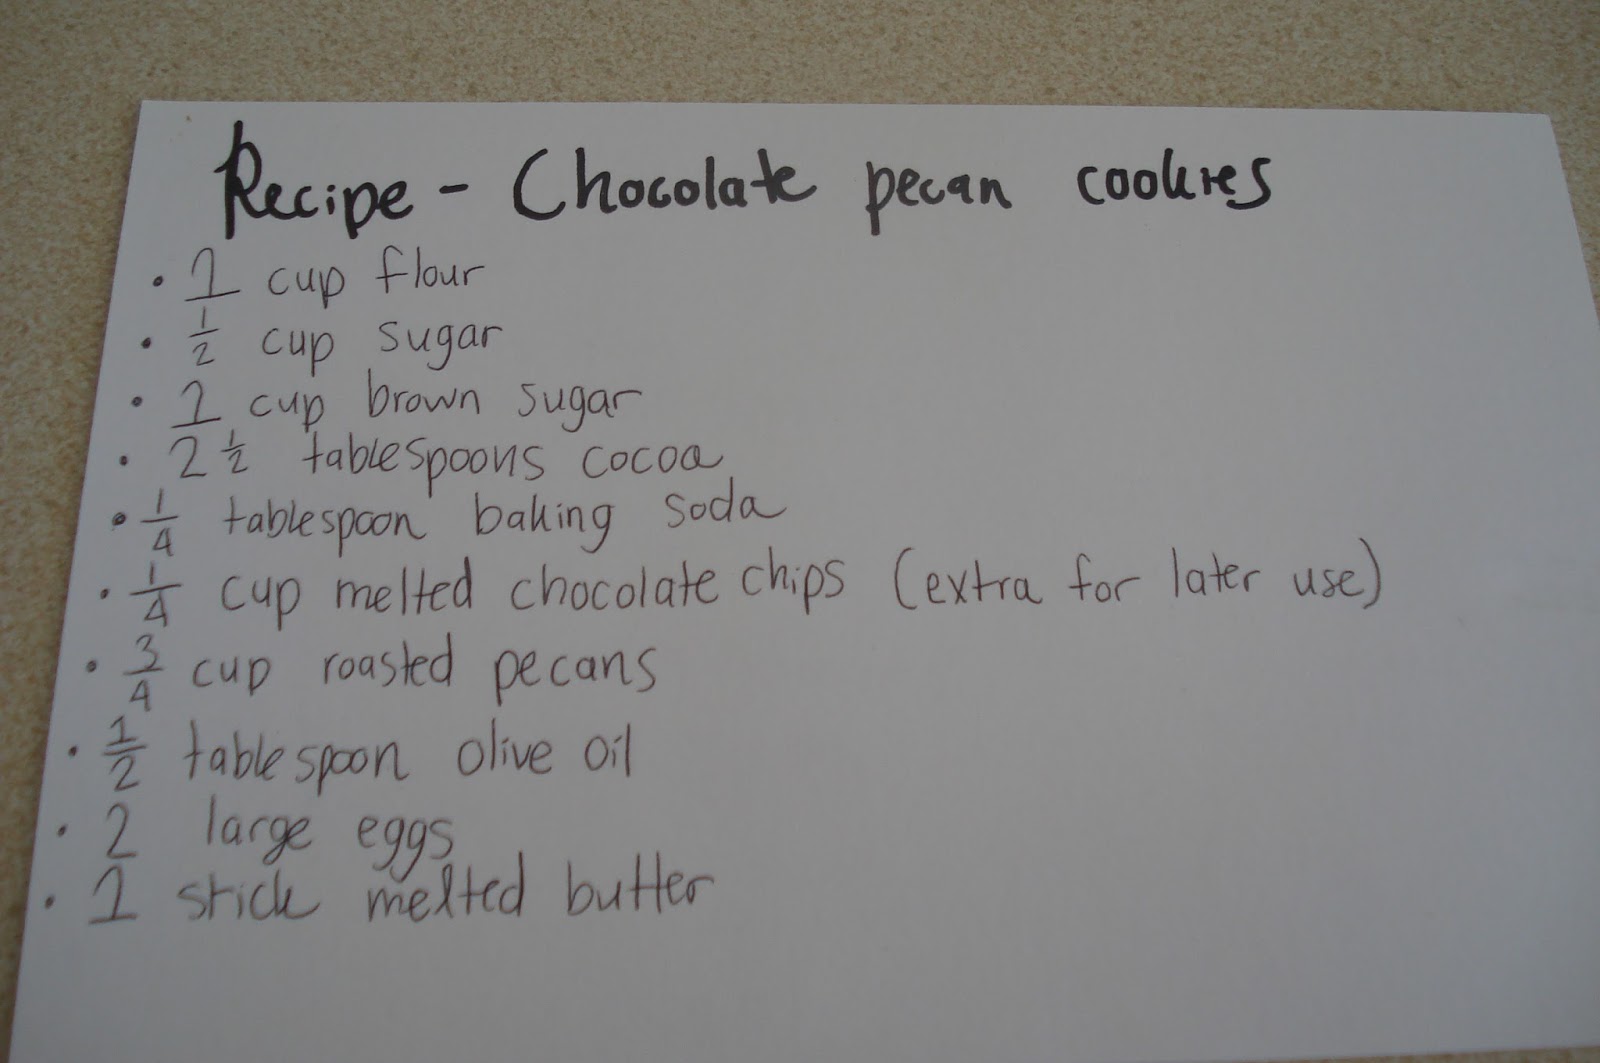 Recipe - Chocolate pecan cookies
• 1 cup flour
• 1/2 cup sugar
• 1 cup brown sugar
• 2 1/2 tablespoons cocoa
• 1/4 tablespoon baking soda
• 1/4 cup melted chocolate chips (extra for later use)
• 3/4 cup roasted pecans
• 1/2 tablespoon olive oil
• 2 large eggs
• 1 stick melted butter